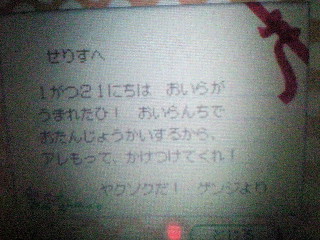 せりすへ
1がつ21にちは おいらが
うまれたひ! おいらんちで
おたんじょうかいするから、
アレもって、かけつけてくれ!
ヤクソクだ! ゲンジより
とじる